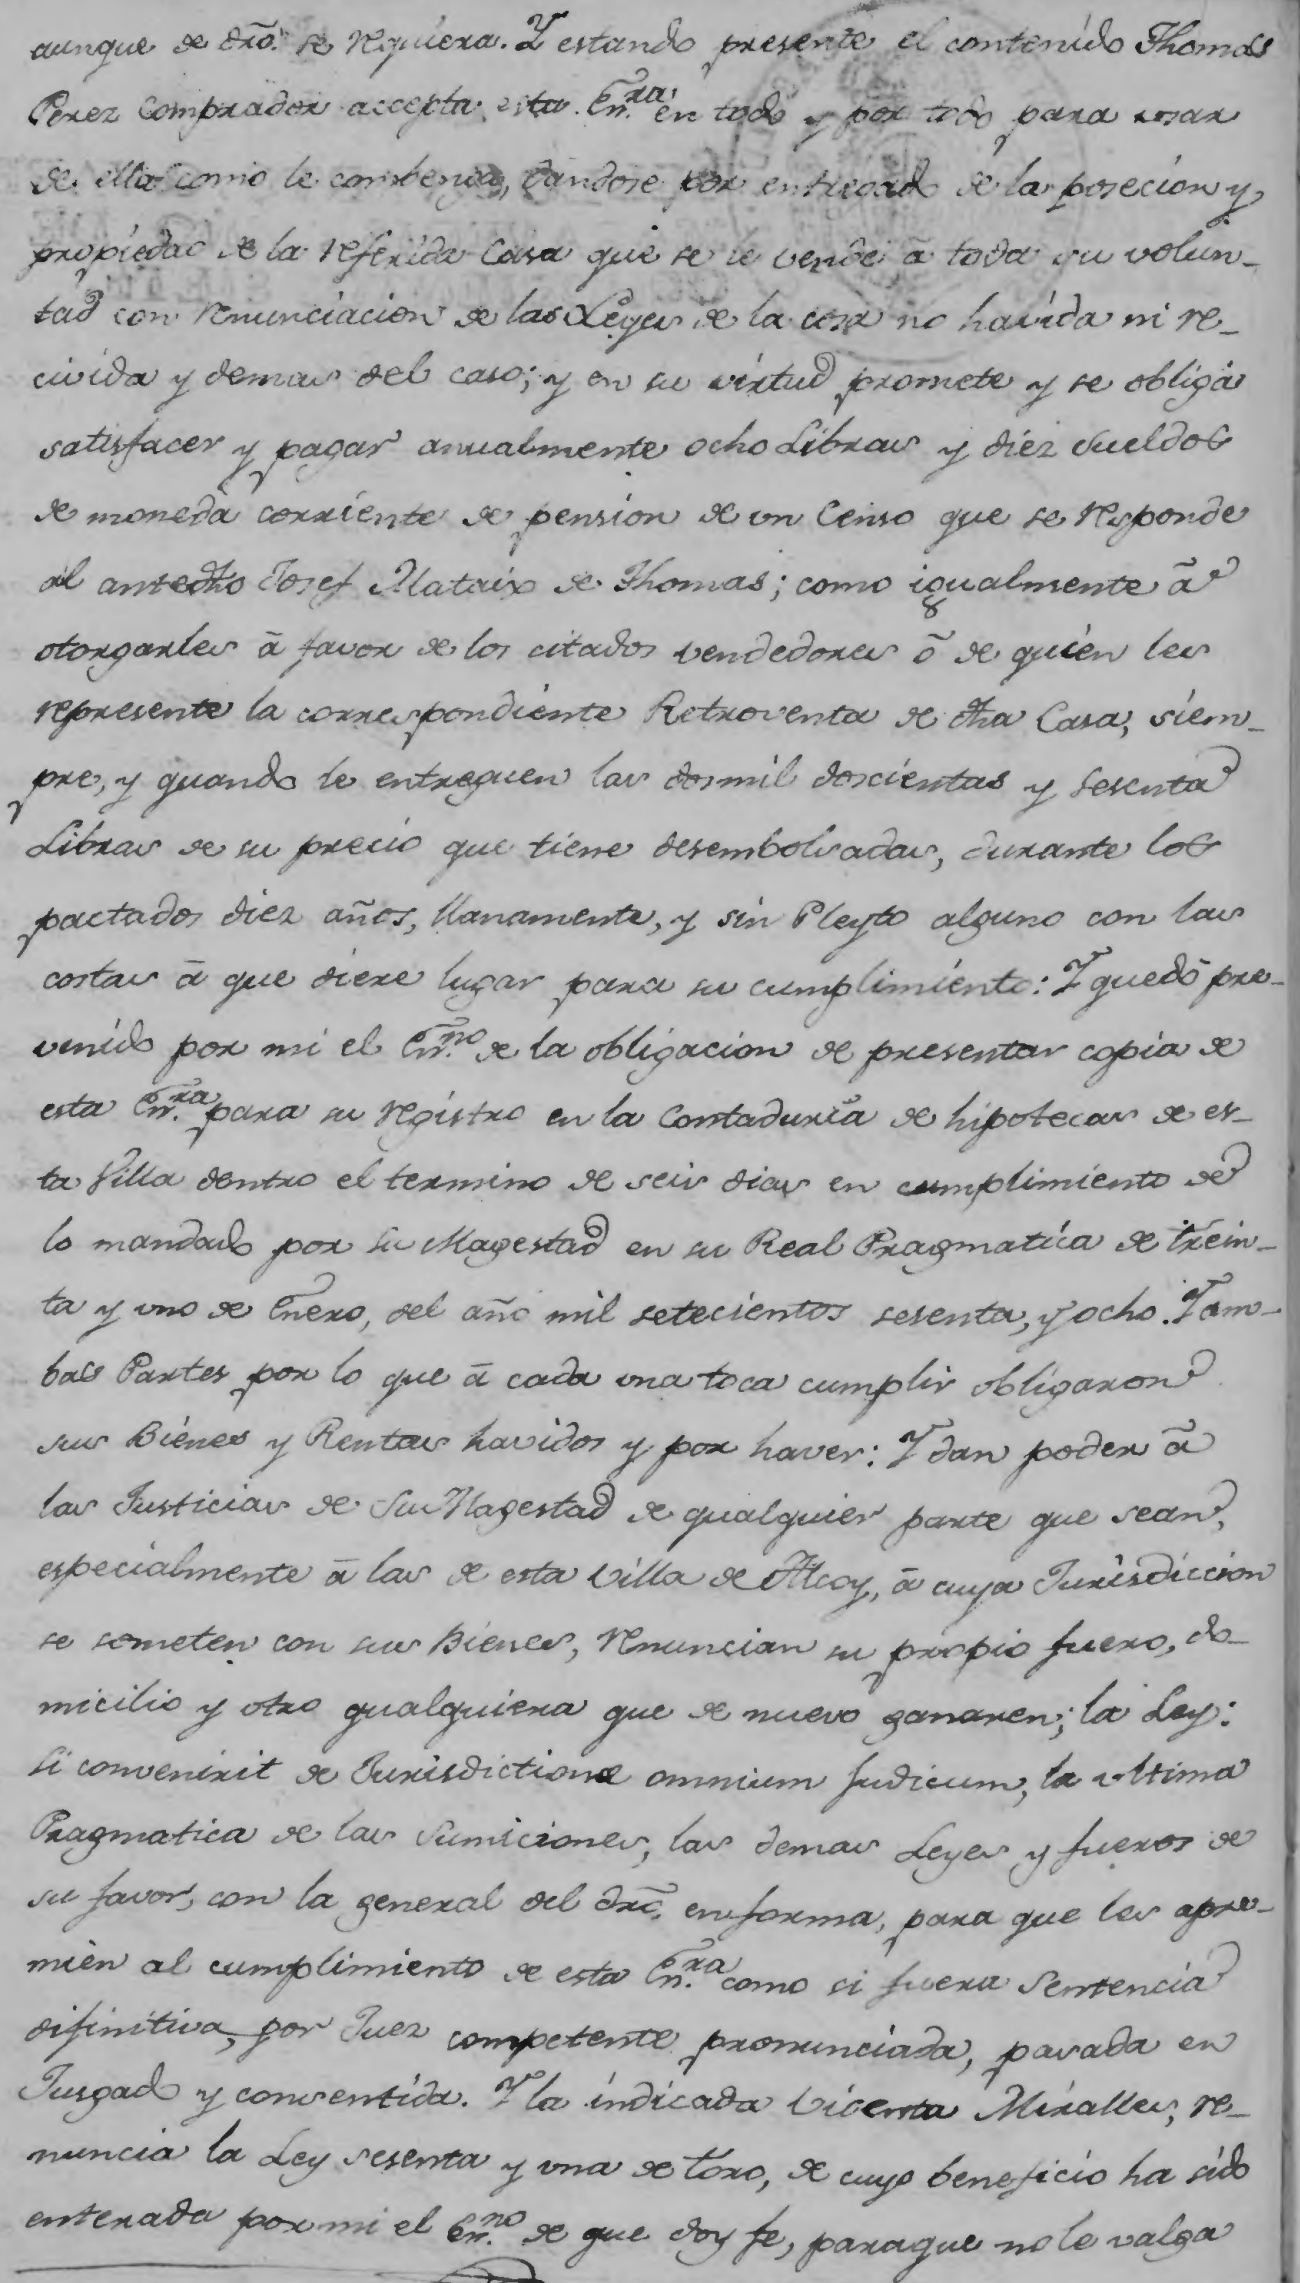 aunque de dro. se requiera. Y estando presente el contenido Thomas
Perez Comprador accepta esta En.ra en todo y por todo para usar
de ella como le combenga, dandose por entregado de la poseción y
propiedad de la referida Casa que se le vende â toda su volun_
tad con renunciacion de las Leyes de la cosa no havida ni re_
civida y demas del caso; y en su virtud promete y se obliga
satisfacer y pagar anualmente ocho Libras y diez sueldos
de moneda corriente de pension de un Censo que se responde
al antedho Josef Mataix de Thomas; como igualmente â
otorgarles â favor de los citados vendedores ô de quien les
represente la correspondiente Retroventa de dha Casa, siem_
pre, y quando le entreguen las dosmil doscientas y sesenta
Libras de su precio que tiene desembolsadas, durante los
pactados diez años, llanamente, y sin Pleyto alguno con las
costas â que diere lugar para su cumplimiento: Y quedó pre_
venido por mi el En.no de la obligacion de presentar copia de
esta En.ra para su registro en la Contaduria de hipotecas de es_
ta Villa dentro el termino de seis dias en cumplimiento de
lo mandado por su Magestad en su Real Pragmatica de trein_
ta y uno de Enero, del año mil setecientos sesenta, y ocho. Y am_
bas Partes por lo que â cada una toca cumplir obligaron
sus Bienes y Rentas havidos y por haver: Y dan poder â
las Justicias de Su Magestad de qualquier parte que sean,
especialmente â las de esta Villa de Alcoy, â cuya Jurisdiccion
se someten con sus Bienes, renuncian su propio fuero, do_
micilio y otro qualquiera que de nuevo ganaren; la Ley:
si convenirit de Jurisdictione omnium Judicum, la ultima
Pragmatica de las sumiciones, las demas Leyes y fueros de
su favor, con la general del dro. en forma, para que les apre_
mien al cumplimiento de esta En.ra como si fuera Sentencia
difinitiva, por Juez competente pronunciada, pasada en
Jusgado y consentida. Y la indicada Vicenta Miralles, re_
nuncia la Ley sesenta y una de toro, de cuyo beneficio ha sido
enterada por mi el En.no de que doy fe, paraque no le valga